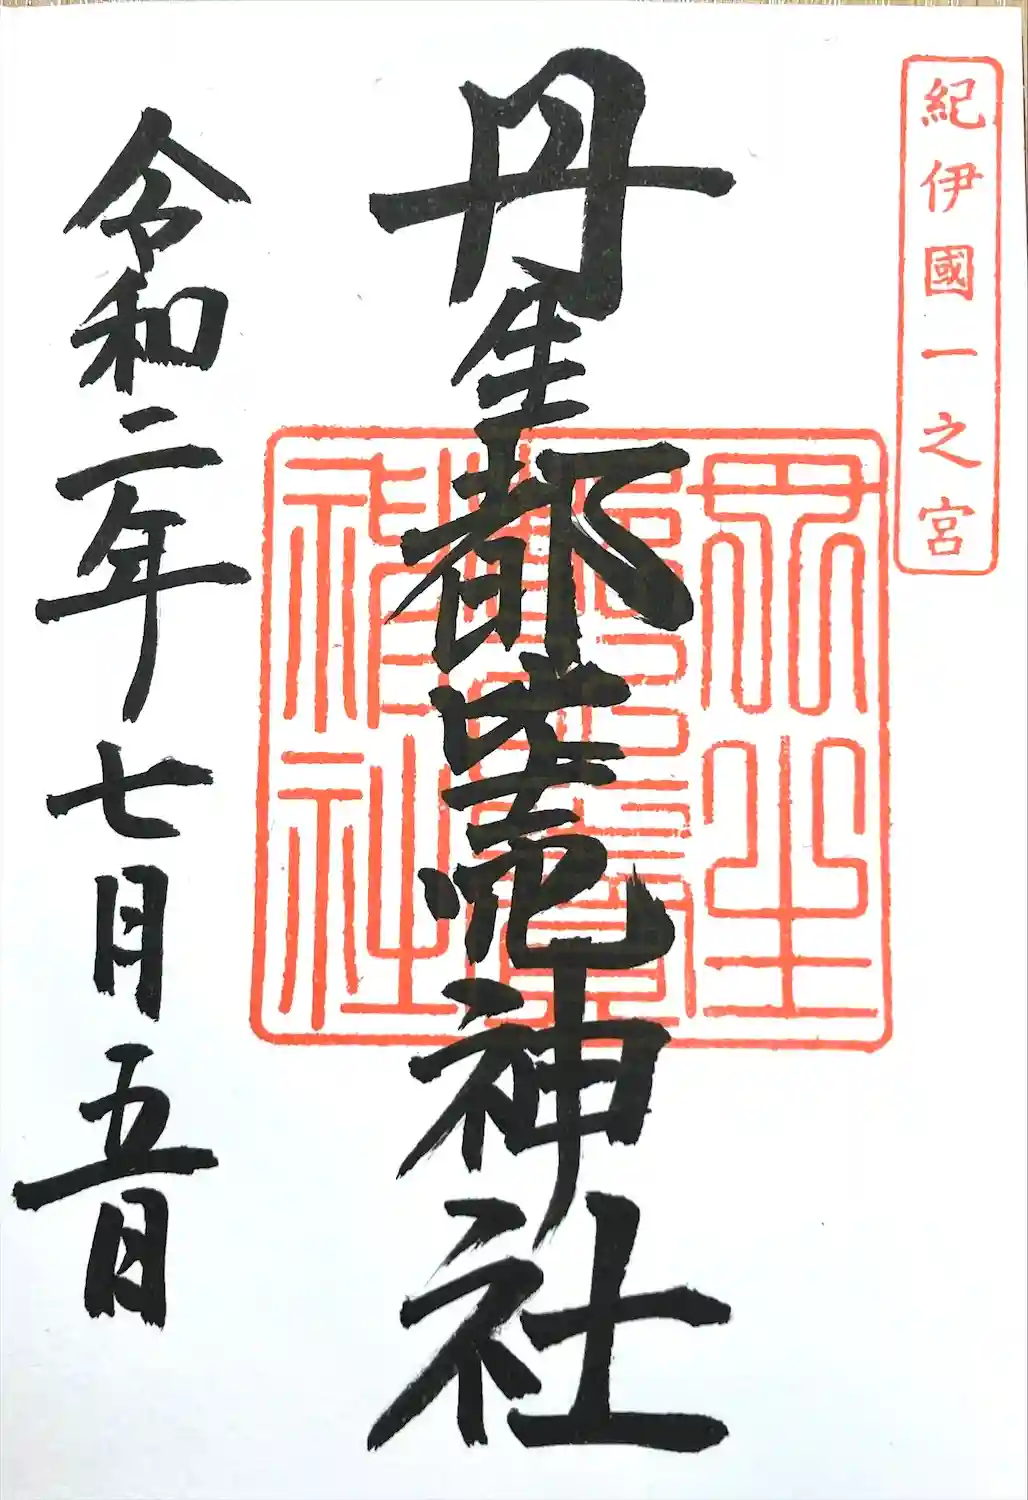 紀伊國一之宮
丹生都比売神社
丹生都比賣神社
令和二年七月五日